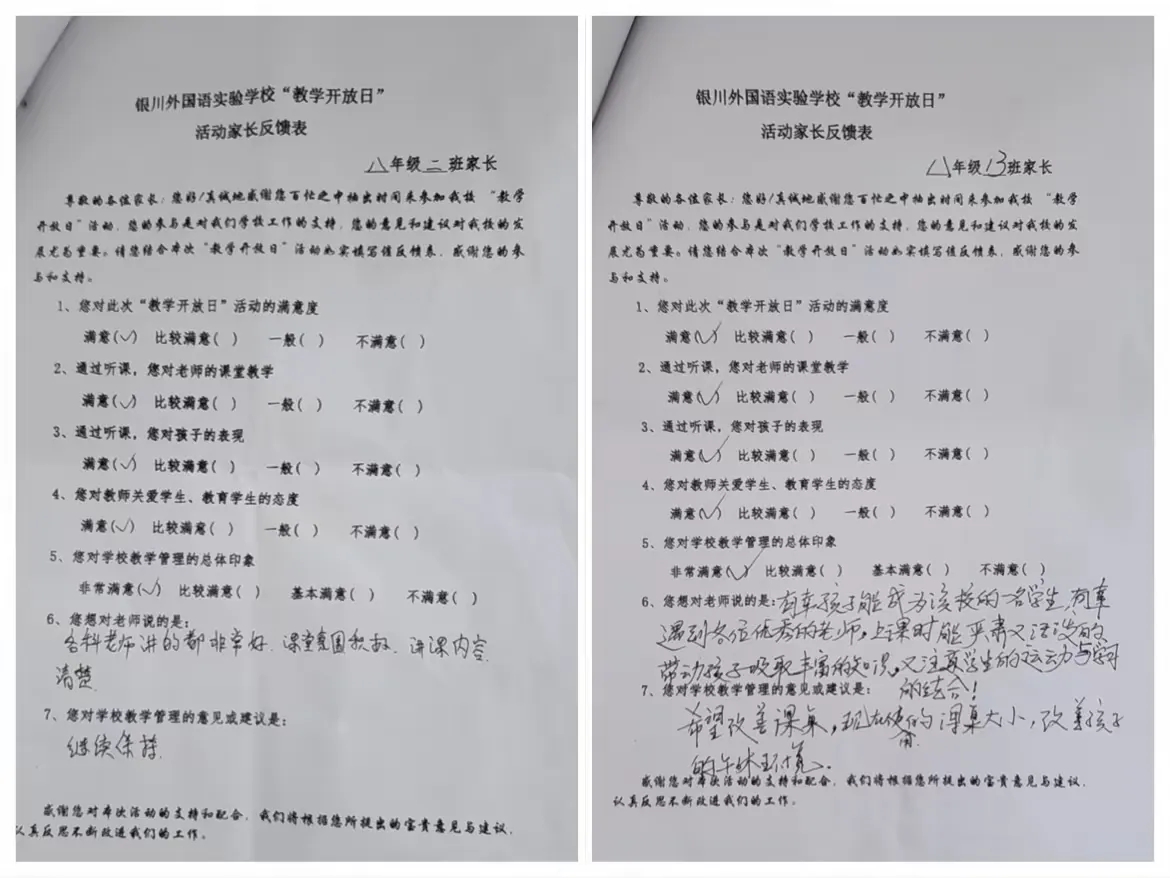 银川外国语实验学校“教学开放日”
活动家长反馈表
八年级二班家长
尊敬的各位家长：您好！真诚地感谢您百忙之中抽出时间来参加我校 “教学
开放日”活动，您的参与是对我们学校工作的支持，您的意见和建议对我校的发
展尤为重要。请您结合本次“教学开放日”活动如实填写值反馈表，感谢您的参
与和支持。
1、您对此次“教学开放日”活动的满意度
满意(✓) 比较满意( ) 一般( ) 不满意( )
2、通过听课，您对老师的课堂教学
满意(✓) 比较满意( ) 一般( ) 不满意( )
3、通过听课，您对孩子的表现
满意(✓) 比较满意( ) 一般( ) 不满意( )
4、您对教师关爱学生、教育学生的态度
满意(✓) 比较满意( ) 一般( ) 不满意( )
5、您对学校教学管理的总体印象
非常满意(✓) 比较满意( ) 基本满意( ) 不满意( )
6、您想对老师说的是：
各科老师讲的都非常好．课堂氛围积极．讲课内容
清楚．
7、您对学校教学管理的意见或建议是：
继续保持．
感谢您对本次活动的支持和配合，我们将根据您所提出的宝贵意见与建议，
认真反思不断改进我们的工作。
银川外国语实验学校“教学开放日”
活动家长反馈表
八年级13班家长
尊敬的各位家长：您好！真诚地感谢您百忙之中抽出时间来参加我校 “教学
开放日”活动，您的参与是对我们学校工作的支持，您的意见和建议对我校的发
展尤为重要。请您结合本次“教学开放日”活动如实填写值反馈表，感谢您的参
与和支持。
1、您对此次“教学开放日”活动的满意度
满意(✓) 比较满意( ) 一般( ) 不满意( )
2、通过听课，您对老师的课堂教学
满意(✓) 比较满意( ) 一般( ) 不满意( )
3、通过听课，您对孩子的表现
满意(✓) 比较满意( ) 一般( ) 不满意( )
4、您对教师关爱学生、教育学生的态度
满意(✓) 比较满意( ) 一般( ) 不满意( )
5、您对学校教学管理的总体印象
非常满意(✓) 比较满意( ) 基本满意( ) 不满意( )
6、您想对老师说的是：有幸孩子能成为该校的一名学生，有幸
遇到各位优秀的老师，上课时能严肃又活泼的
带动孩子吸取丰富的知识，又注重学生的运动与学习
的结合！
7、您对学校教学管理的意见或建议是：
希望改善课桌，现在使用的课桌太小，改善孩子
的午休环境．
感谢您对本次活动的支持和配合，我们将根据您所提出的宝贵意见与建议，
认真反思不断改进我们的工作。